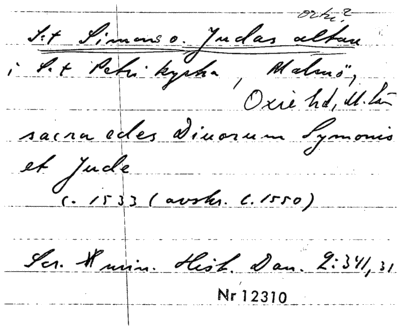 S:t Simons o. Judas altare
i S:t Petri kyrka, Malmö,
Oxie hd, M. län
sacra edes Diuorum Symonis
et Jude
c. 1533 (avskr. c. 1550)
Scr. min. Hist. Dan. 2:341, 31
Nr 12310